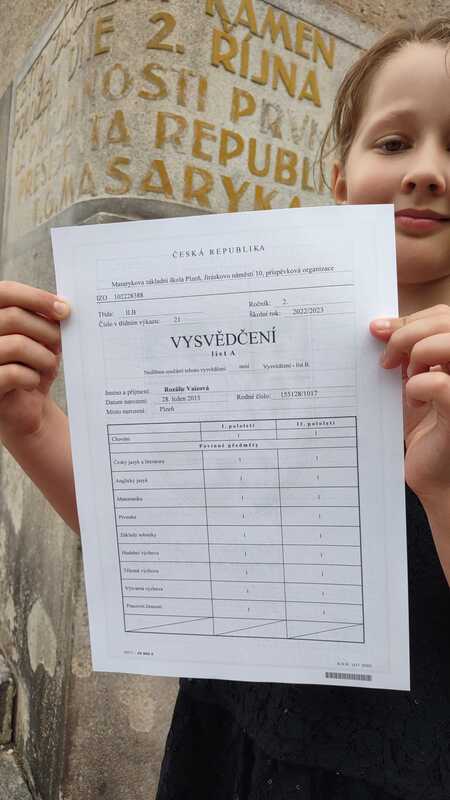 KÁMEN
DNE 2. ŘÍJNA
REPUBLI
T.G.MASARYKA
ČESKÁ REPUBLIKA
Masarykova základní škola Plzeň, Jiráskovo náměstí 10, příspěvková organizace
IZO 102228388
Třída: II.B Ročník: 2.
Číslo v třídním výkazu: 21 Školní rok: 2022/2023
VYSVĚDČENÍ
list A
Nedílnou součástí tohoto vysvědčení není Vysvědčení - list B.
Jméno a příjmení: Rozálie Vaizová
Datum narození: 28. leden 2015 Rodné číslo: 155128/1017
Místo narození: Plzeň
I. pololetí II. pololetí
Chování 1
Povinné předměty
Český jazyk a literatura 1 1
Anglický jazyk 1 1
Matematika 1 1
Prvouka 1 1
Základy robotiky 1 1
Hudební výchova 1 1
Tělesná výchova 1 1
Výtvarná výchova 1 1
Pracovní činnosti 1 1